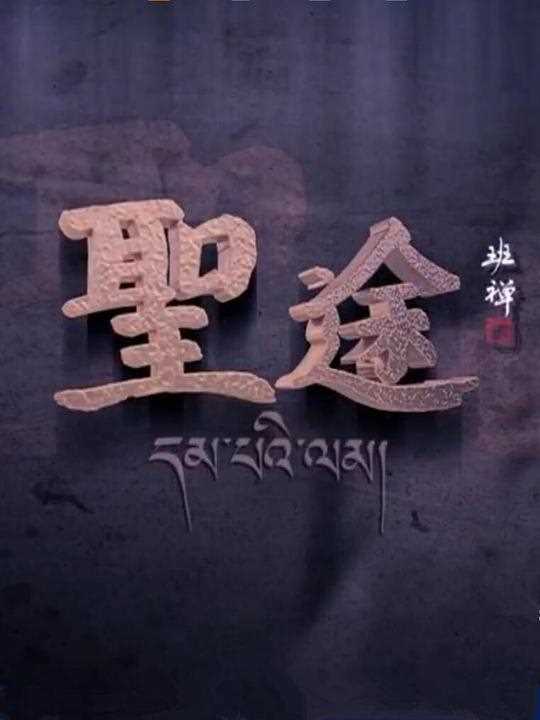 聖途
班禅
དམ་པའི་ལམ།